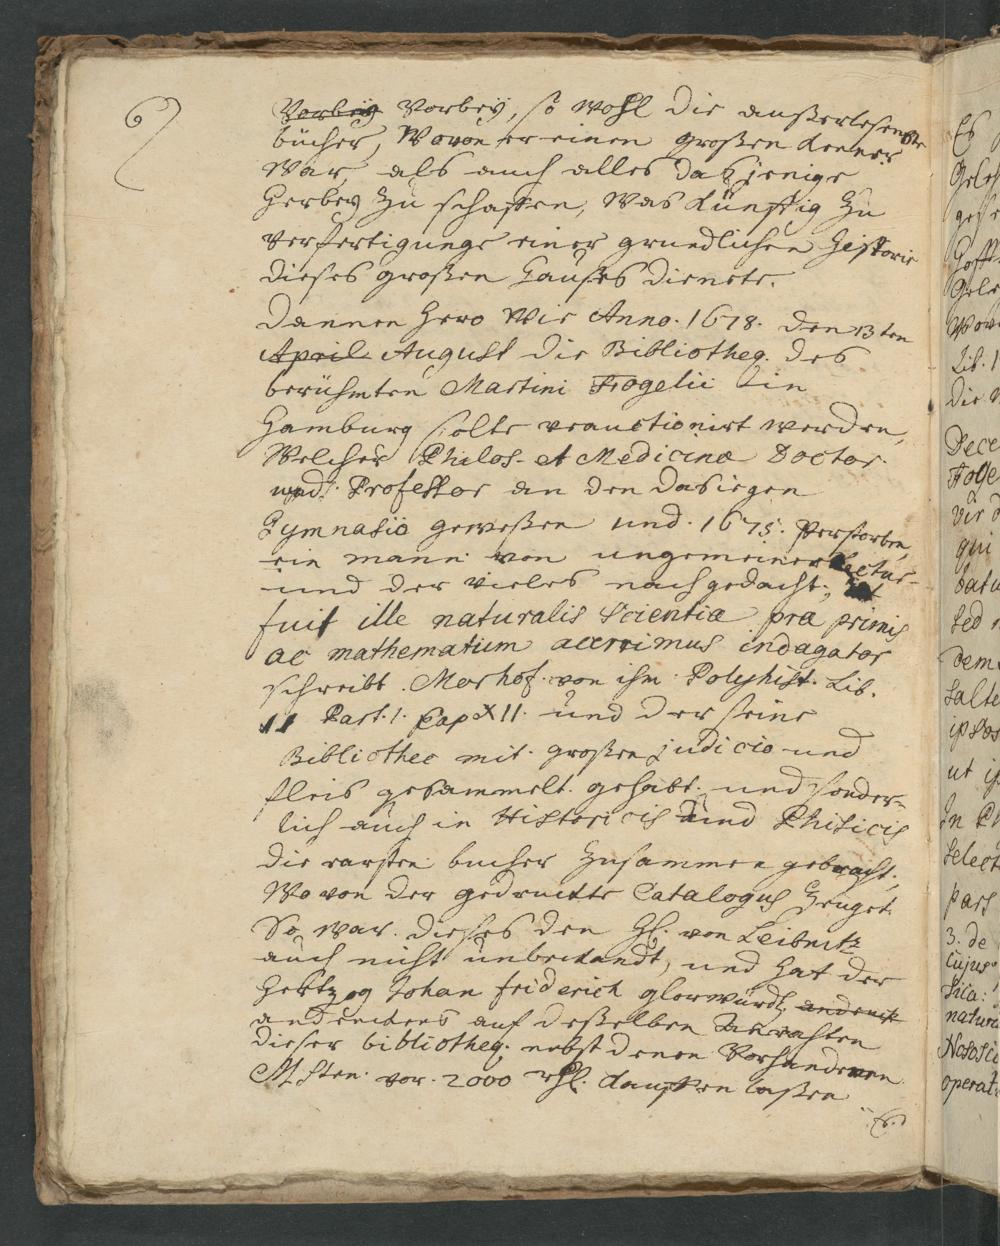 6
Vorbeÿ Vorbeÿ, so wohl die außerlesenste
bücher, Wovon er einen großen kenner
War, als auch alles dasjenige
herbeÿ zu schaffen, Was künfftig zu
verfertigunge einer grundlichen Historie
dieses großen Hauses dienete.
Dannen hero Wie Anno. 1678. den 13ten
April August die Bibliotheq. des
berühmten Martini Fogelii in
Hamburg solte verauctionirt werden,
Welcher Philos- et Medicinæ Doctor
und Professor an den dasiegen
Gymnasio geweßen und. 1675. verstorben,
ein mann von ungemeiner Lectur-
und der vieles nachgedacht;
fuit ille naturalis Scientiæ præ primis
ac mathematum acerrimus indagator
schreibt. Morhof. von ihm Polyhist. Lib.
11 Part. 1. Cap XII. und der seine
Bibliothec mit großen judicio und
fleis gesammelt. gehabt. und sonder-
lich auch in Historicis und Phisicis
die rarsten bucher zusammen gebracht;
Wovon der gedruckte Catalogus Zeuget.
So war. dieses den H. von Leibnitz
auch nicht unbekandt, und hat der
Hertzog Johan friderich glorwürdt. andenck
andenckens auf deßelben Anrahten
dieser bibliotheq; nebst denen Vorhandenen
Msten. vor. 2000 rthl. kauffen laßen
Es